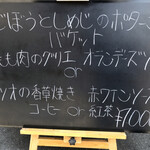 ごぼうとしめじのポター
バケット
もも肉のグリエ オランデーズソ
or
ツオの香草焼き 赤ワインソー
コーヒー or 紅茶 ¥1000